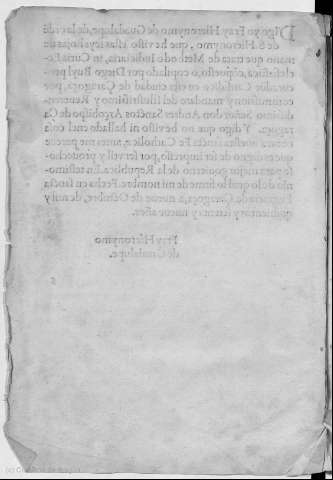 Digo yo Fray Hieronymo de Guadalupe, de la ordē
de S. Hieronymo, que he visto
mano que trata de Methodo Iudiciaria, in Curia
compuesto, o copilado por Diego
curador Catholico en esta ciudad de Çaragoça, por
commission y mandato del Illustrissimo y Reueren-
dissimo Señor don Andres Sanctos Arçobispo de Ça
ragoça. Y digo que no he visto ni hallado enel cosa
contra nuestra sancta Fe Catholica, antes me parece
que es digno de ser impresso, por ser vtil y prouecho-
so para mejor gouierno de la Republica. En testimo-
nio de lo qual lo firme de mi nombre. Fecha en sancta
Engracia de Çaragoça, a nueue de Octubre, de mil y
quinientos y ochenta y nueue años.
Fray Hieronymo
de Guadalupe.